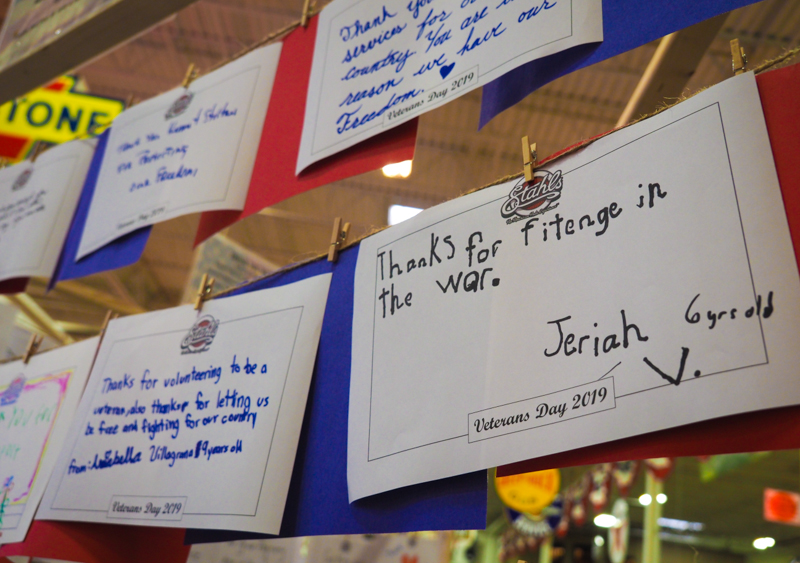 Thank you
services for
country You are
reason we have our
Freedom.
Veterans Day 2019
TONE
our Freedom,
Veterans Day 2019
Stahls
Thanks for fitenge in
the war.
Jeriah 6 yrs old
V.
Veterans Day 2019
Thanks for volunteering to be a
veteran, also thanks for letting us
be free and fighting for our country
from: Villagrana 9 years old
Veterans Day 2019